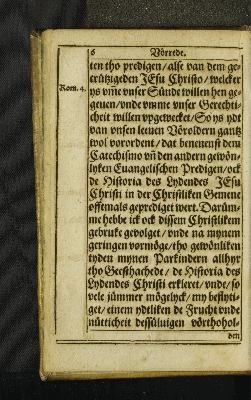 6
Vörrede.
ten tho predigen / alse van dem ge-
crützigeden JEsu Christo / welcker
Rom. 4.
ys vmme vnser Sünde willen hen ge-
geuen / vnde vmme vnser Gerechti-
cheit willen vpgewecket / So ys ydt
van vnsen leuen Vöroldern gantz
wol vorordent / dat beneuenst dem
Catechismo vñ den andern gewön-
lyken Euangelischen Predigen / ock
de Historia des Lydendes JEsu
Christi in der Christliken Gemene
offtmals geprediget wert. Darüm-
me hebbe ick ock dissem Christlikem
gebruke geuolget / vnde na mynem
geringen vormöge / tho gewönliken
tyden mynen Parkindern allhyr
tho Geesthachede / de Historia des
Lydendes Christi erkleret / vnde / so
vele jümmer mögelyck / my beflyti-
get / einem ydtliken de Frucht vnde
nütticheit dessüluigen vörthohol-
den